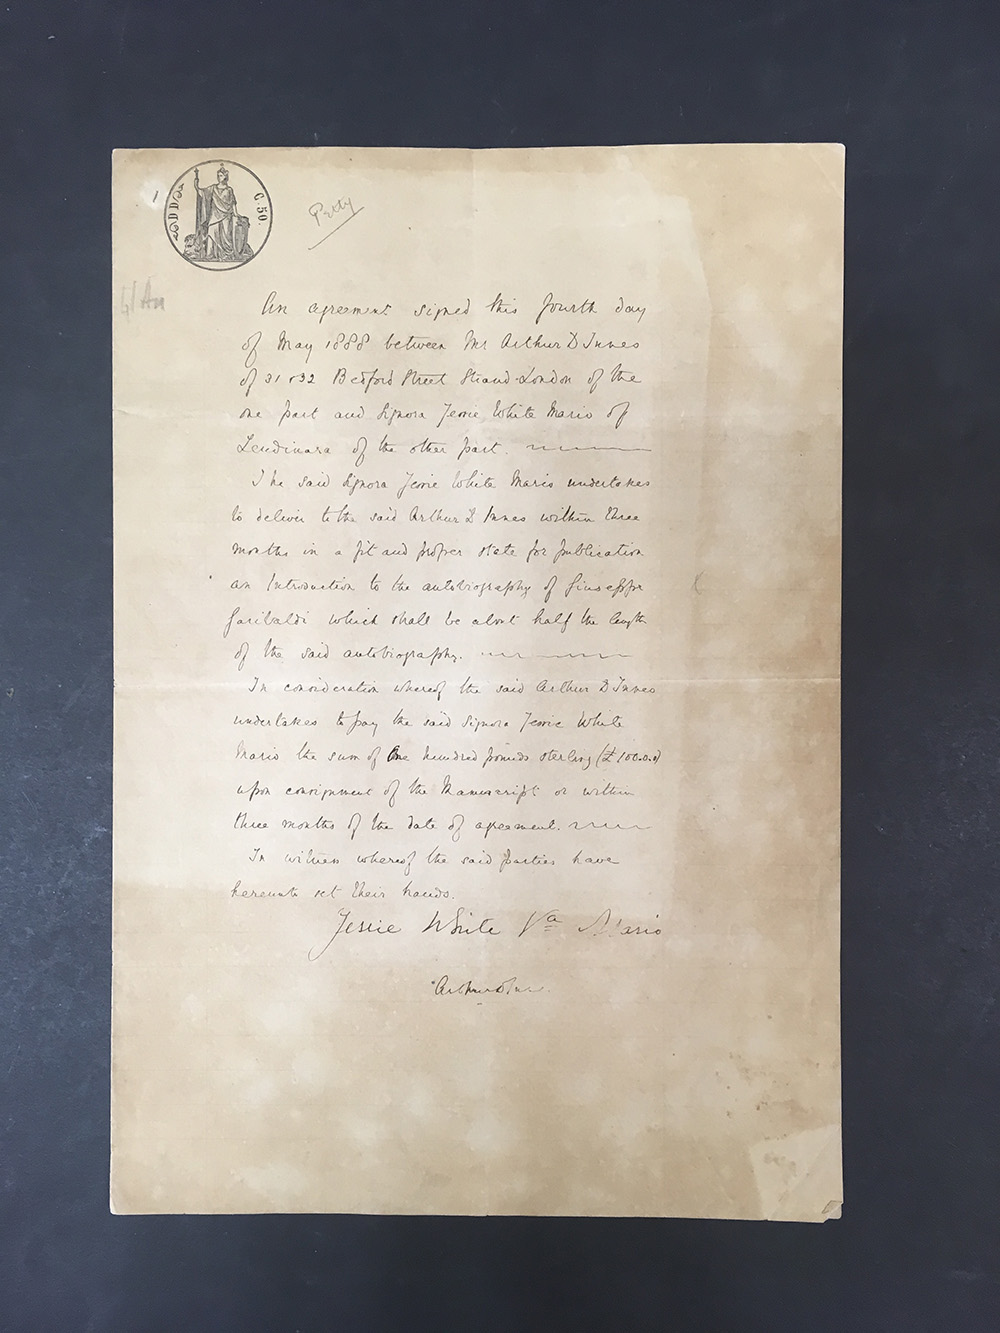 C. 50.
Petty
An agreement signed this fourth day
of May 1888 between Mr Arthur D Innes
of 31 & 32 Bedford Street Strand London of the
one part and Signora Jessie White Mario of
Lendinara of the other part.
The said Signora Jessie White Mario undertakes
to deliver to the said Arthur D Innes within three
months in a fit and proper state for publication
an Introduction to the autobiography of Giuseppe
Garibaldi which shall be about half the length
of the said autobiography.
In consideration whereof the said Arthur D Innes
undertakes to pay the said Signora Jessie White
Mario the sum of One hundred pounds sterling (£100.0.0)
upon consignment of the Manuscript or within
three months of the date of agreement.
In witness whereof the said parties have
hereunto set their hands.
Jessie White Va Mario
Arthur D Innes